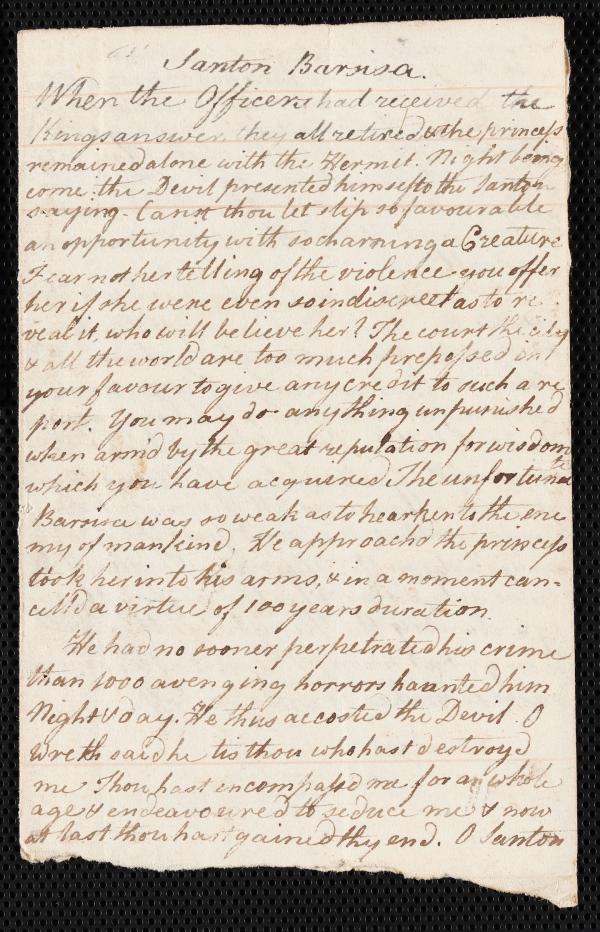 Santon Barsisa.
When the Officers had received the
Kings answer, they all retired & the princess
remained alone with the Hermit. Night being
come the Devil presented himself to the Santon
saying. Canst thou let slip so favourable
an opportunity with so charming a Creature
Fear not her telling of the violence you offer
her if she were even so indiscreet as to re
veal it, who will believe her? The court the city
& all the world are too much prepossed in
your favour to give any credit to such a re
port. You may do anything unpunished
when arm'd by the great reputation for wisdom
which you have acquired. The unfortunate
Barsisa was so weak as to hearken to the ene
my of mankind. He approach'd the princess
took her into his arms, & in a moment can-
cell'd a virtue of 100 years duration.
He had no sooner perpetrated his crime
than 1000 avenging horrors haunted him
Night & day. He thus accosted the Devil. O
wretch said he tis thou who hast destroyd
me Thou hast encompassd me for an whole
age & endeavoured to seduce me & now
at last thou hast gained thy end. O Santon